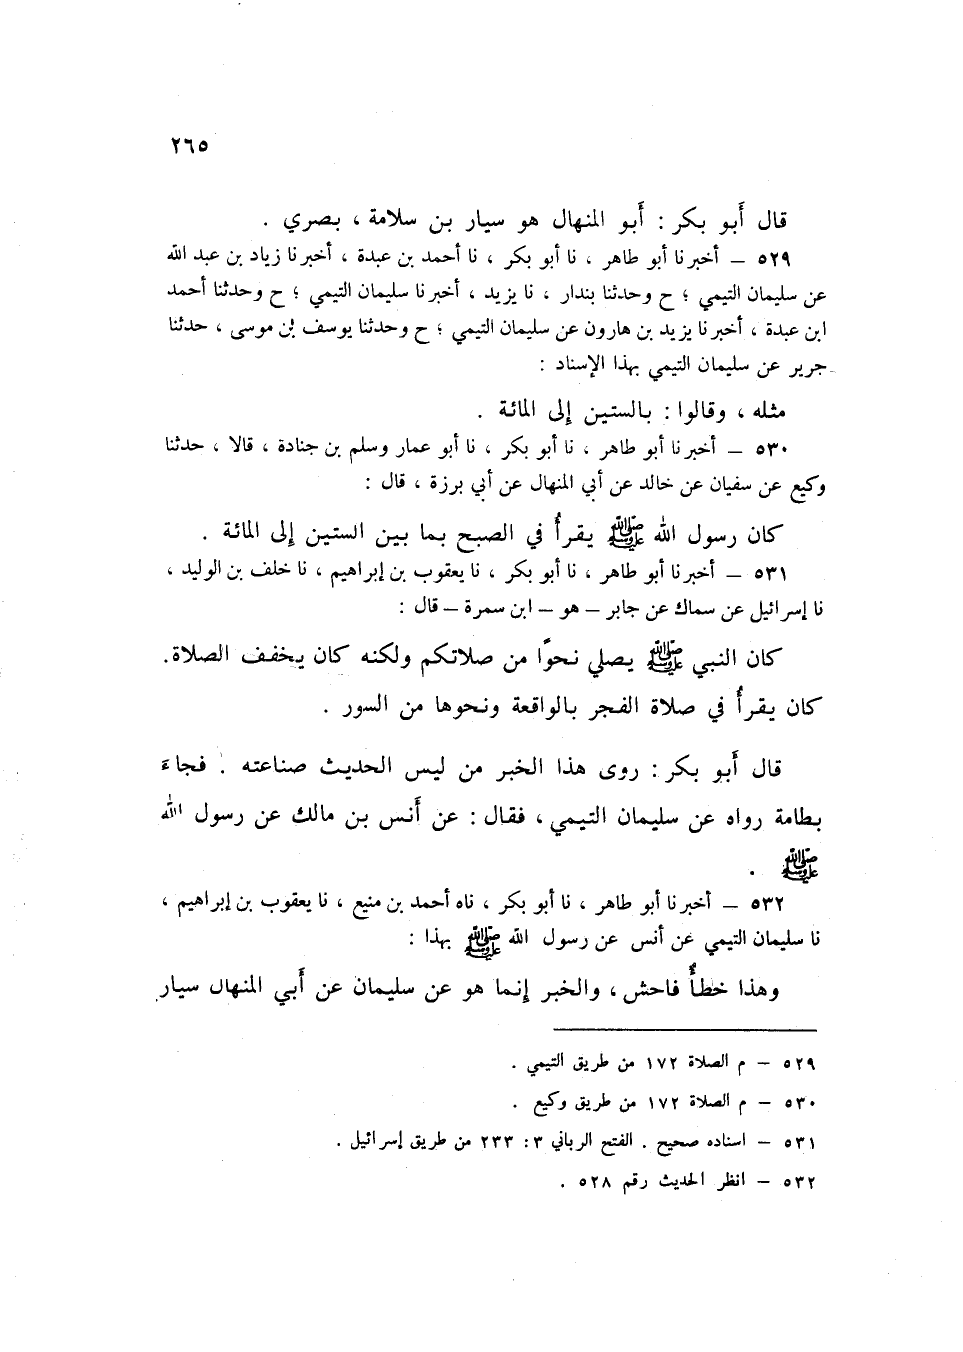 ٢٦٥
قال أَبو بكر : أَبو المنهال هو سيار بن سلامة ، بصري .
٥٢٩ – أخبرنا أبو طاهر ، نا أبو بكر ، نا أحمد بن عبدة ، أخبرنا زياد بن عبد الله
عن سليمان التيمي ؛ ح وحدثنا بندار ، نا يزيد ، أخبرنا سليمان التيمي ؛ ح وحدثنا أحمد
ابن عبدة ، أخبرنا يزيد بن هارون عن سليمان التيمي ؛ ح وحدثنا يوسف بن موسى ، حدثنا
جرير عن سليمان التيمي بهذا الإسناد :
مثله ، وقالوا : بالستين إلى المائة .
٥٣٠ – أخبرنا أبو طاهر ، نا أبو بكر ، نا أبو عمار وسلم بن جنادة ، قالا ، حدثنا
وكيع عن سفيان عن خالد عن أبي المنهال عن أبي برزة ، قال :
كان رسول الله ﷺ يقرأُ في الصبح بما بين الستين إلى المائة .
٥٣١ – أخبرنا أبو طاهر ، نا أبو بكر ، نا يعقوب بن إبراهيم ، نا خلف بن الوليد ،
نا إسرائيل عن سماك عن جابر – هو – ابن سمرة – قال :
كان النبي ﷺ يصلي نحوًا من صلاتكم ولكنه كان يخفف الصلاة .
كان يقرأُ في صلاة الفجر بالواقعة ونحوها من السور .
قال أَبو بكر : روى هذا الخبر من ليس الحديث صناعته . فجاءَ
بطامة رواه عن سليمان التيمي ، فقال : عن أَنس بن مالك عن رسول الله
ﷺ .
٥٣٢ – أخبرنا أبو طاهر ، نا أبو بكر ، ناه أحمد بن منيع ، نا يعقوب بن إبراهيم ،
نا سليمان التيمي عن أنس عن رسول الله ﷺ بهذا :
وهذا خطأٌ فاحش ، والخبر إنما هو عن سليمان عن أَبي المنهال سيار
٥٢٩ – م الصلاة ١٧٢ من طريق التيمي .
٥٣٠ – م الصلاة ١٧٢ من طريق وكيع .
٥٣١ – اسناده صحيح . الفتح الرباني ٣ : ٢٣٣ من طريق إسرائيل .
٥٣٢ – انظر الحديث رقم ٥٢٨ .